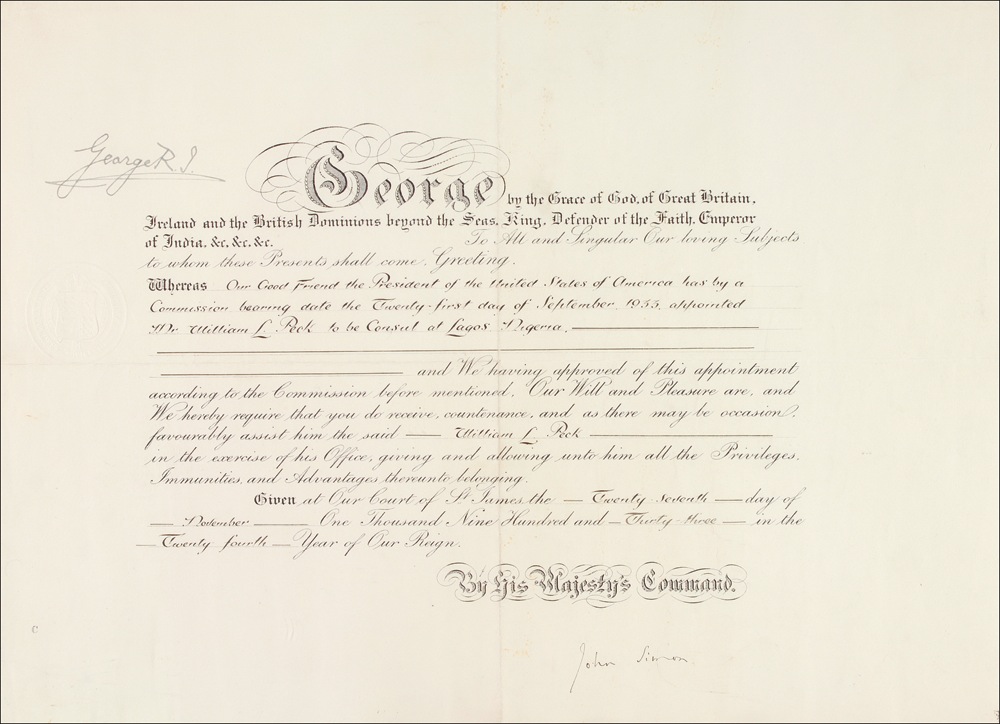 George R. I.
George by the Grace of God, of Great Britain,
Ireland and the British Dominions beyond the Seas, King, Defender of the Faith, Emperor
of India, &c, &c, &c. To All and Singular Our loving Subjects
to whom these Presents shall come, Greeting.
Whereas Our Good Friend the President of the United States of America has by a
Commission bearing date the Twenty-first day of September, 1933, appointed
Mr William L Peck to be Consul at Lagos Nigeria,
and We having approved of this appointment
according to the Commission before mentioned, Our Will and Pleasure are, and
We hereby require that you do receive, countenance, and as there may be occasion,
favourably assist him the said — William L Peck —
in the exercise of his Office, giving and allowing unto him all the Privileges,
Immunities, and Advantages thereunto belonging.
Given at Our Court of St James, the — Twenty seventh — day of
— November — One Thousand Nine Hundred and — Thirty-three — in the
— Twenty fourth — Year of Our Reign.
By His Majesty's Command.
John Simon
C